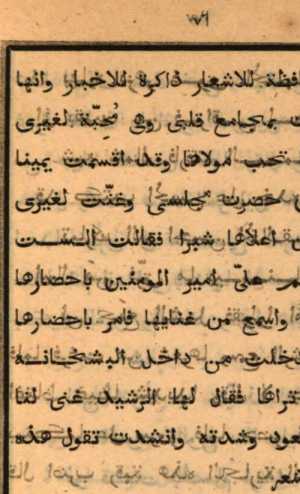 ٧٦
للاشعار ذاكرة للاخبار وانها
بمجامع قلبى وهى محبّة لغيرى
تحب مولاها وقد اقسمت يمينا
حضرت مجلسى وغنّت لغيرى
اعلاها شبرا فقالت الست
علىّ امير المومنين باحضارها
واسمع من غنايها فامر باحضارها
من داخل البشخانه
فقال لها الرشيد غنى لنا
وشدته وانشدت تقول هذه